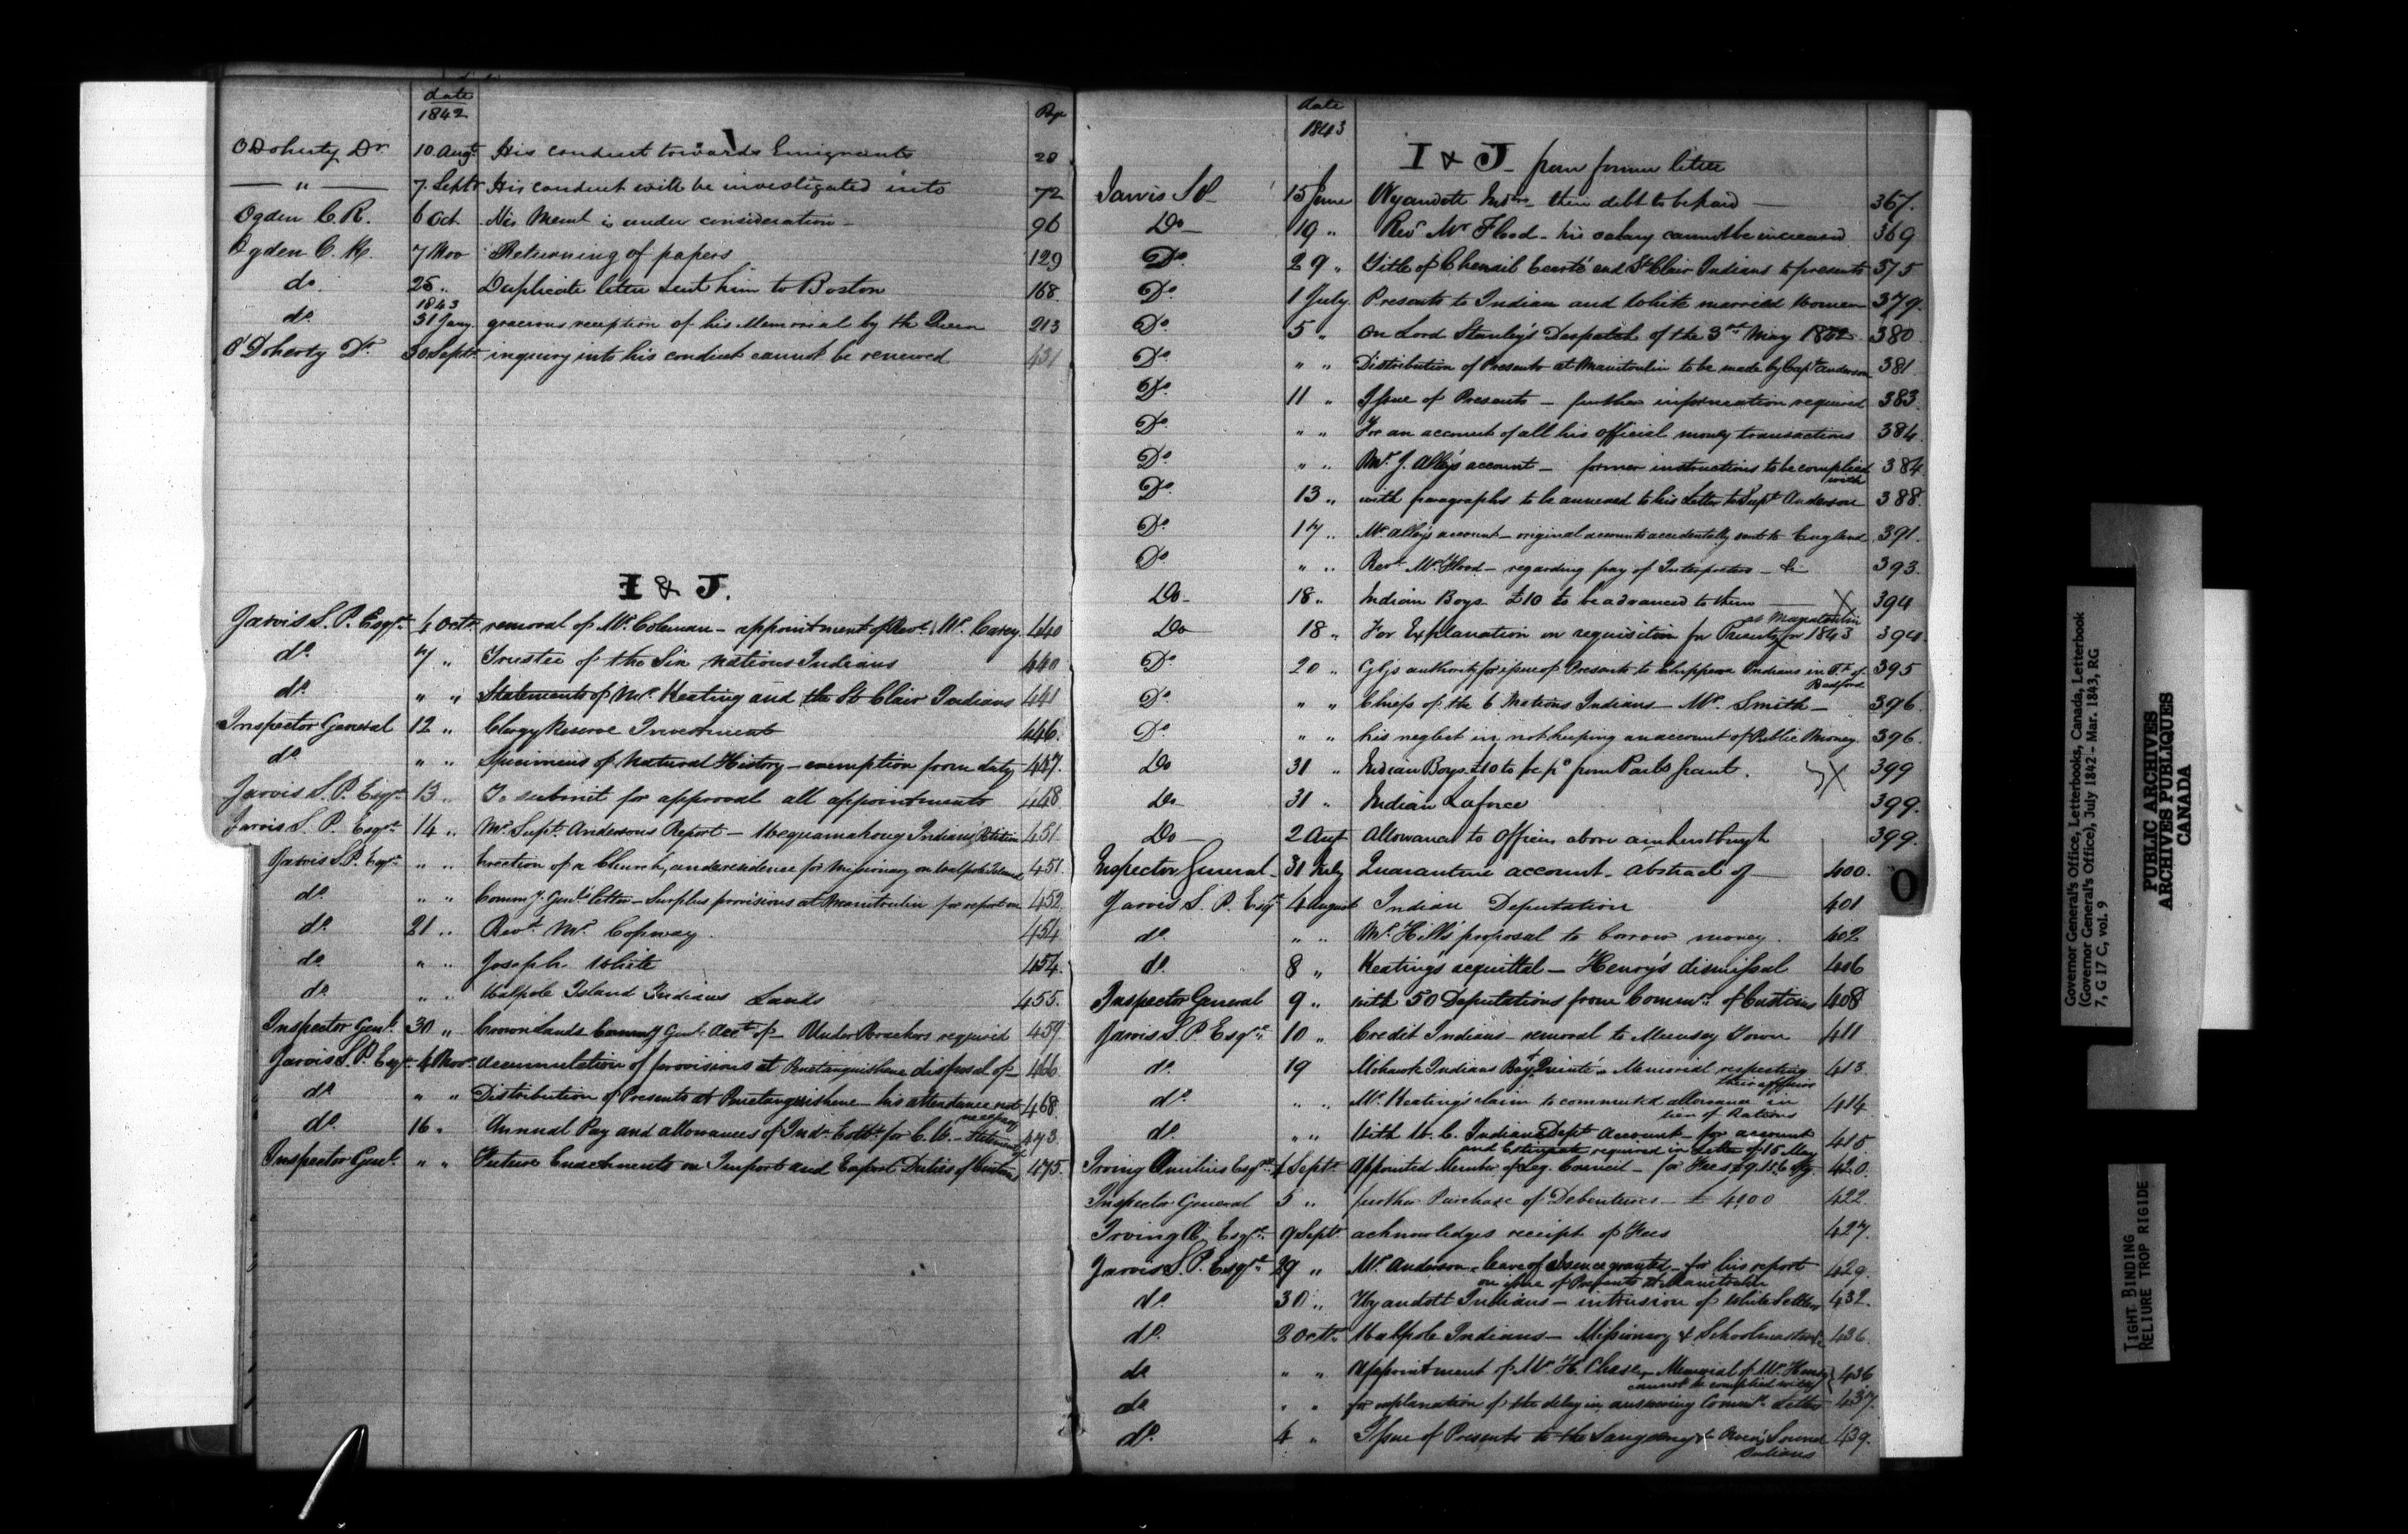 date
1842
Page
O Doherty Dr. 10 Augt. His conduct towards Emigrants 28
— " — 7. Septr His conduct will be investigated into 72
Ogden C. R. 6 Oct. His Meml is under consideration – 96
Ogden C. R. 7 Nov Returning of papers 129
do. 25 " Duplicate letter sent him to Boston 168.
1843
do. 31 Jany. gracious reception of his Memorial by the Queen 213
O'Doherty Dr. 30 Septr. inquiry into his conduct cannot be renewed 431
I & J.
Jarvis S. P. Esqr. Octr. removal of Mr. Coleman – appointment of Revd. Mr. Carey 440
do. 7 " Trustee of the Six Nations Indians 440
do. " " Statements of Mr. Keating and the St Clair Indians 441
Inspector General 12 " Clergy Reserve Investment 446.
do. " " Specimens of Natural History – exemption from duty 447.
Jarvis S. P. Esqr. 13 " To submit for approval all appointments 448
Jarvis S. P. Esqr. 14 " Mr Supt. Andersons Report – Indians Petition 451.
Jarvis S.P. Esqr. " " Erection of a Church, and residence for Missionary on Walpole Island 451.
do. " " Commy. Genl's letter – Surplus provisions at Manitoulin for report on 452.
do. 21 " Revd. Mr. Copway. 454
do. " " Joseph White 454.
do. " " Walpole Island Indians Lands 455.
Inspector Genl. 30 " Crown Lands Genl. Acct. of – Under Vouchers required 459.
Jarvis S. P. Esqr. 4 Novr. accumulation of provisions at Penetanguishene disposal of – 466.
do. " " Distribution of Presents at Penetanguishene – his attendance not necessary 468.
do. 16 " Annual Pay and allowances of Indn. Estbt. for C. W. – Statement of 473.
Inspector Genl. " " Future Enactments on Import and Export Duties of Customs 475.
date
1843
I & J – from former letter
Jarvis S P – 15 June Wyandott Indns – their debt to be paid — 367.
Do – 19 " Revd Mr Flood – his salary cannot be increased 369
Do. 29 " Title of Chenail Ecarté and St Clair Indians to presents 375
Do. 1 July. Presents to Indian and White married Women 379.
Do. 5 " On Lord Stanley's Despatch of the 3rd May 1842. 380
Do. " " Distribution of Presents at Manitoulin to be made by Capt. Anderson 381.
Do. 11 " Issue of Presents – further information required 383.
Do. " " For an account of all his official money transactions 384.
Do. " " Mr. J. Alley's account – former instructions to be complied with 384
Do. 13 " with paragraphs to be annexed to his Letter to Supt Anderson 388.
Do. 17 " Mr. Alley's account – original accounts accidentally sent to England 391.
Do. " " Revd. Mr Flood – regarding pay of Interpreters – &c 393.
Do – 18 " Indian Boys. £10 to be advanced to them — X 394
at Manitoulin
Do 18 " For Explanation on requisition for Presents for 1843 394
Do. 20 " authority for issue of Presents to Chippewa Indians in Tp. of Bedford 395
Do. " " Chiefs of the 6 Nations Indians – Mr. Smith – 396.
Do. " " his neglect in not keeping an account of Public Money. 396.
Do 31 " Indian Boys. £10 to be pd from Parlt grant. X 399
Do – 31 " Indian Laforce 399.
Do – 2 Augt Allowance to Officers above Amherstburgh 399.
Inspector General – 31 July Quarantine account – Abstract of — 400.
Jarvis S. P. Esqr 4 August Indian Deputation 401
do. " " Mr. Hill's proposal to borrow money. 402
do. 8 " Keating's acquittal – Henry's dismissal 406
Inspector General 9 " with 50 Deputations from Commrs. of Customs 408
Jarvis S. P Esqr. 10 " Credit Indians – removal to Muncey Town 411
do. 19 Mohawk Indians Bay Quinté – Memorial respecting their affairs 413.
do. " " Mr. Keating's claim to commuted allowance in lieu of Rations 414
do. " " With U. C. Indian Dept Account – for account and Estimate required in Letter of 15 May 415.
Irving Æmilius Esqr. Septr. Appointed Member of Leg. Council – for Fees £9.15.6 420.
Inspector General 5 " further Purchase of Debentures – £ 4000 422.
Irving Æ. Esqr. 9 Septr. acknowledges receipt of Fees 427.
Jarvis S. P. Esqr. 29 " Mr. Anderson – leave of absence granted – for his report on issue of Presents at Manitoulin 429.
do. 30 " Wyandott Indians – intrusion of White Settlers 432.
do. 2 Octr. Walpole Indians – Missionary & Schoolmaster 436.
do " " Appointment of Mr. H. Chase – Memorial of Mr. Henry cannot be complied with 436
do " " for explanation of the delay in answering Commrs. Letter 437.
do. 4 " Issue of Presents to the Saugeeng & Owen's Sound Indians 439.
O
Governor General's Office, Letterbooks, Canada, Letterbook
(Governor General's Office), July 1842 - Mar. 1843, RG
7, G 17 C, vol. 9
PUBLIC ARCHIVES
ARCHIVES PUBLIQUES
CANADA
TIGHT BINDING
RELIURE TROP RIGIDE